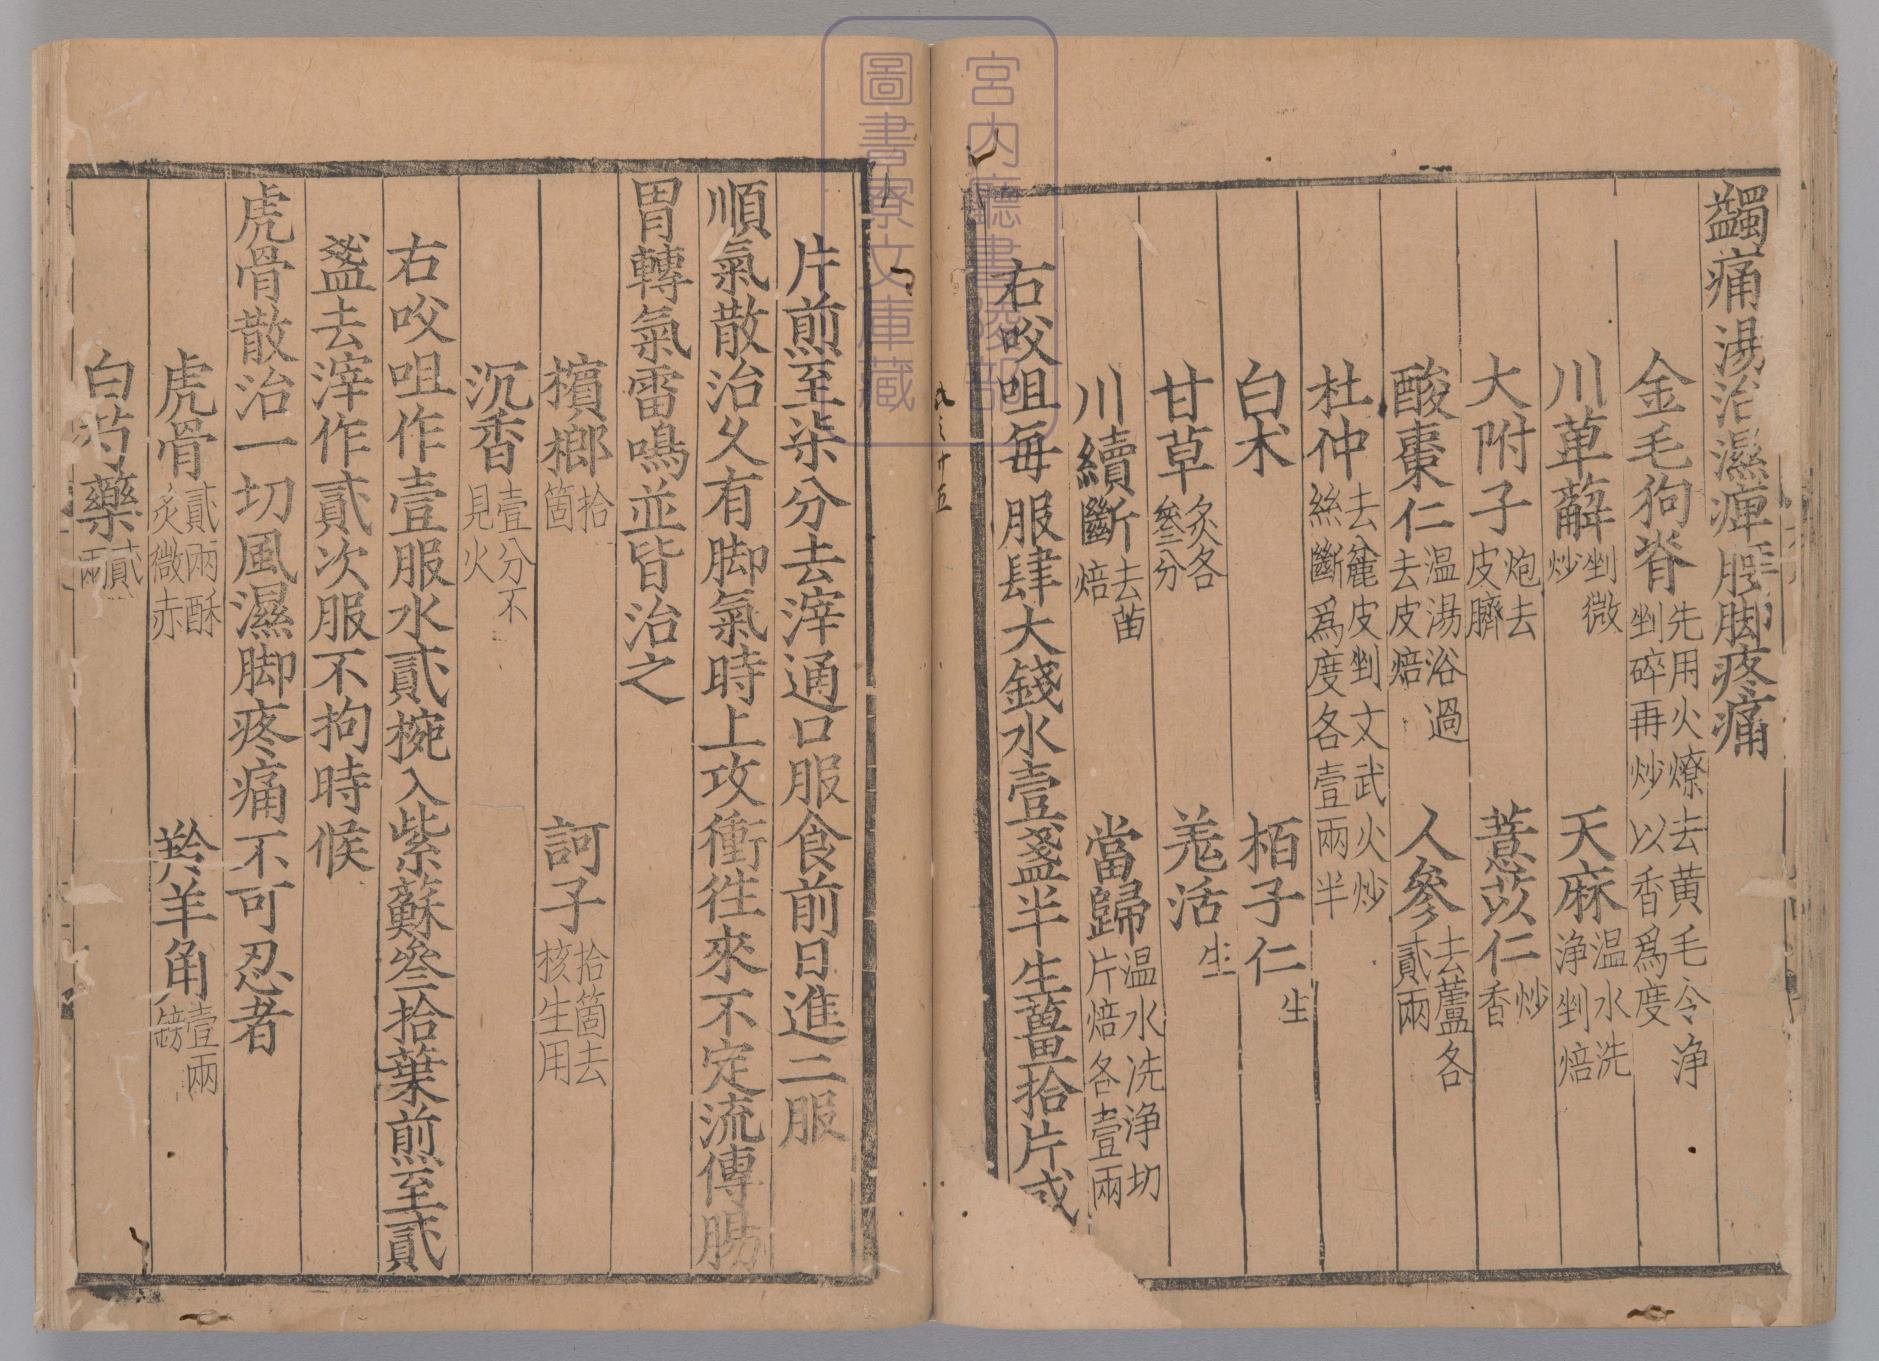 蠲痛湯治濕痺腰脚疼痛
金毛狗脊先用火燎去黄毛令浄剉碎再炒以香爲度
川萆薢剉微炒 天麻温水洗浄剉焙
大附子炮去皮臍 薏苡仁炒香
酸棗仁温湯浴過去皮焙 人參去蘆各貳兩
杜仲去麄皮剉文武火炒絲斷爲度各壹兩半
白朮 栢子仁生
甘草炙各叁分 羗活生
川續斷去苗焙 當歸温水洗浄切片焙各壹兩
右㕮咀每服肆大錢水壹盞半生薑拾片或
片煎至柒分去滓通口服食前日進二服
順氣散治久有脚氣時上攻衝徃來不定流傳腸
胃轉氣雷鳴並皆治之
檳榔拾箇 訶子拾箇去核生用
沉香壹分不見火
右㕮咀作壹服水貳椀入紫蘇叄拾葉煎至貳
盞去滓作貳次服不拘時候
虎骨散治一切風濕脚疼痛不可忍者
虎骨貳兩酥炙微赤 羚羊角壹兩鎊
白芍藥貳兩
宮内廳書陵部
圖書寮文庫藏